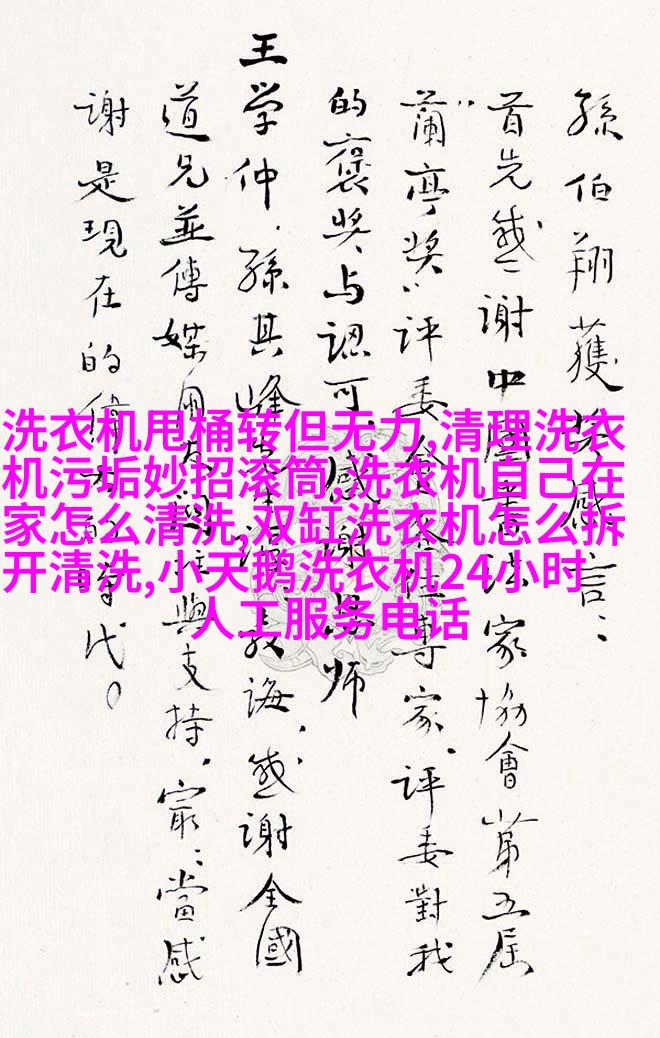 孫伯翔獲奖感言：
首先感謝中國書法家協會第五届
"蘭亭奖"評委會專家、評委對我
的褒奖与認可，感謝恩师
王学仲、孫其峰教誨，感謝全國
道兄並傳媒與支持，最：當感
謝是現在的偉大的時代。
洗衣机甩桶转但无力,清理洗衣
机污垢妙招滚筒,洗衣机自己在
家怎么清洗,双缸洗衣机怎么拆
开清洗,小天鹅洗衣机24小时
人工服务电话